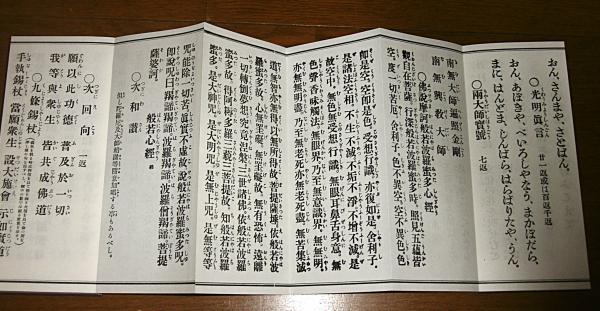 おん、さんまや、さとばん。
〇光明眞言 廿一返或は百返千返
おん、あぼきや、べいろしやなう、まかぼだら、
まに、はんどま、じんばら、はらばりたや、うん。
〇兩大師寶號 七返
南無大師遍照金剛
南無興教大師
〇佛說摩訶般若波羅蜜多心經
觀自在菩薩。行深般若波羅蜜多時。照見五蘊皆
空。度一切苦厄。舍利子。色不異空。空不異色。色
卽是空。空卽是色。受想行識。亦復如是。舍利子。
是諸法空相。不生不滅。不垢不淨。不增不減。是
故空中。無色無受想行識。無眼耳鼻舌身意。無
色聲香味觸法。無眼界。乃至無意識界。無無明。
亦無無明盡。乃至無老死。亦無老死盡。無苦集滅
道。無智亦無得。以無所得故。菩提薩埵。依般若波
羅蜜多故。心無罣礙。無罣礙故。無有恐怖。遠離
一切顚倒夢想。究竟涅槃。三世諸佛。依般若波羅
蜜多故。得阿耨多羅三藐三菩提。故知般若波羅
蜜多。是大神咒。是大明咒。是無上咒。是無等等
咒。能除一切苦。眞實不虛。故說般若波羅蜜多咒。
卽說咒曰。羯諦羯諦。波羅羯諦。波羅僧羯諦。菩提
薩婆訶。般若心經
〇次和讃
〇次回向 一返
願以此功德 普及於一切
我等與衆生 皆共成佛道
〇九條錫杖
手執錫杖 當願衆生 設大施會 示如實道